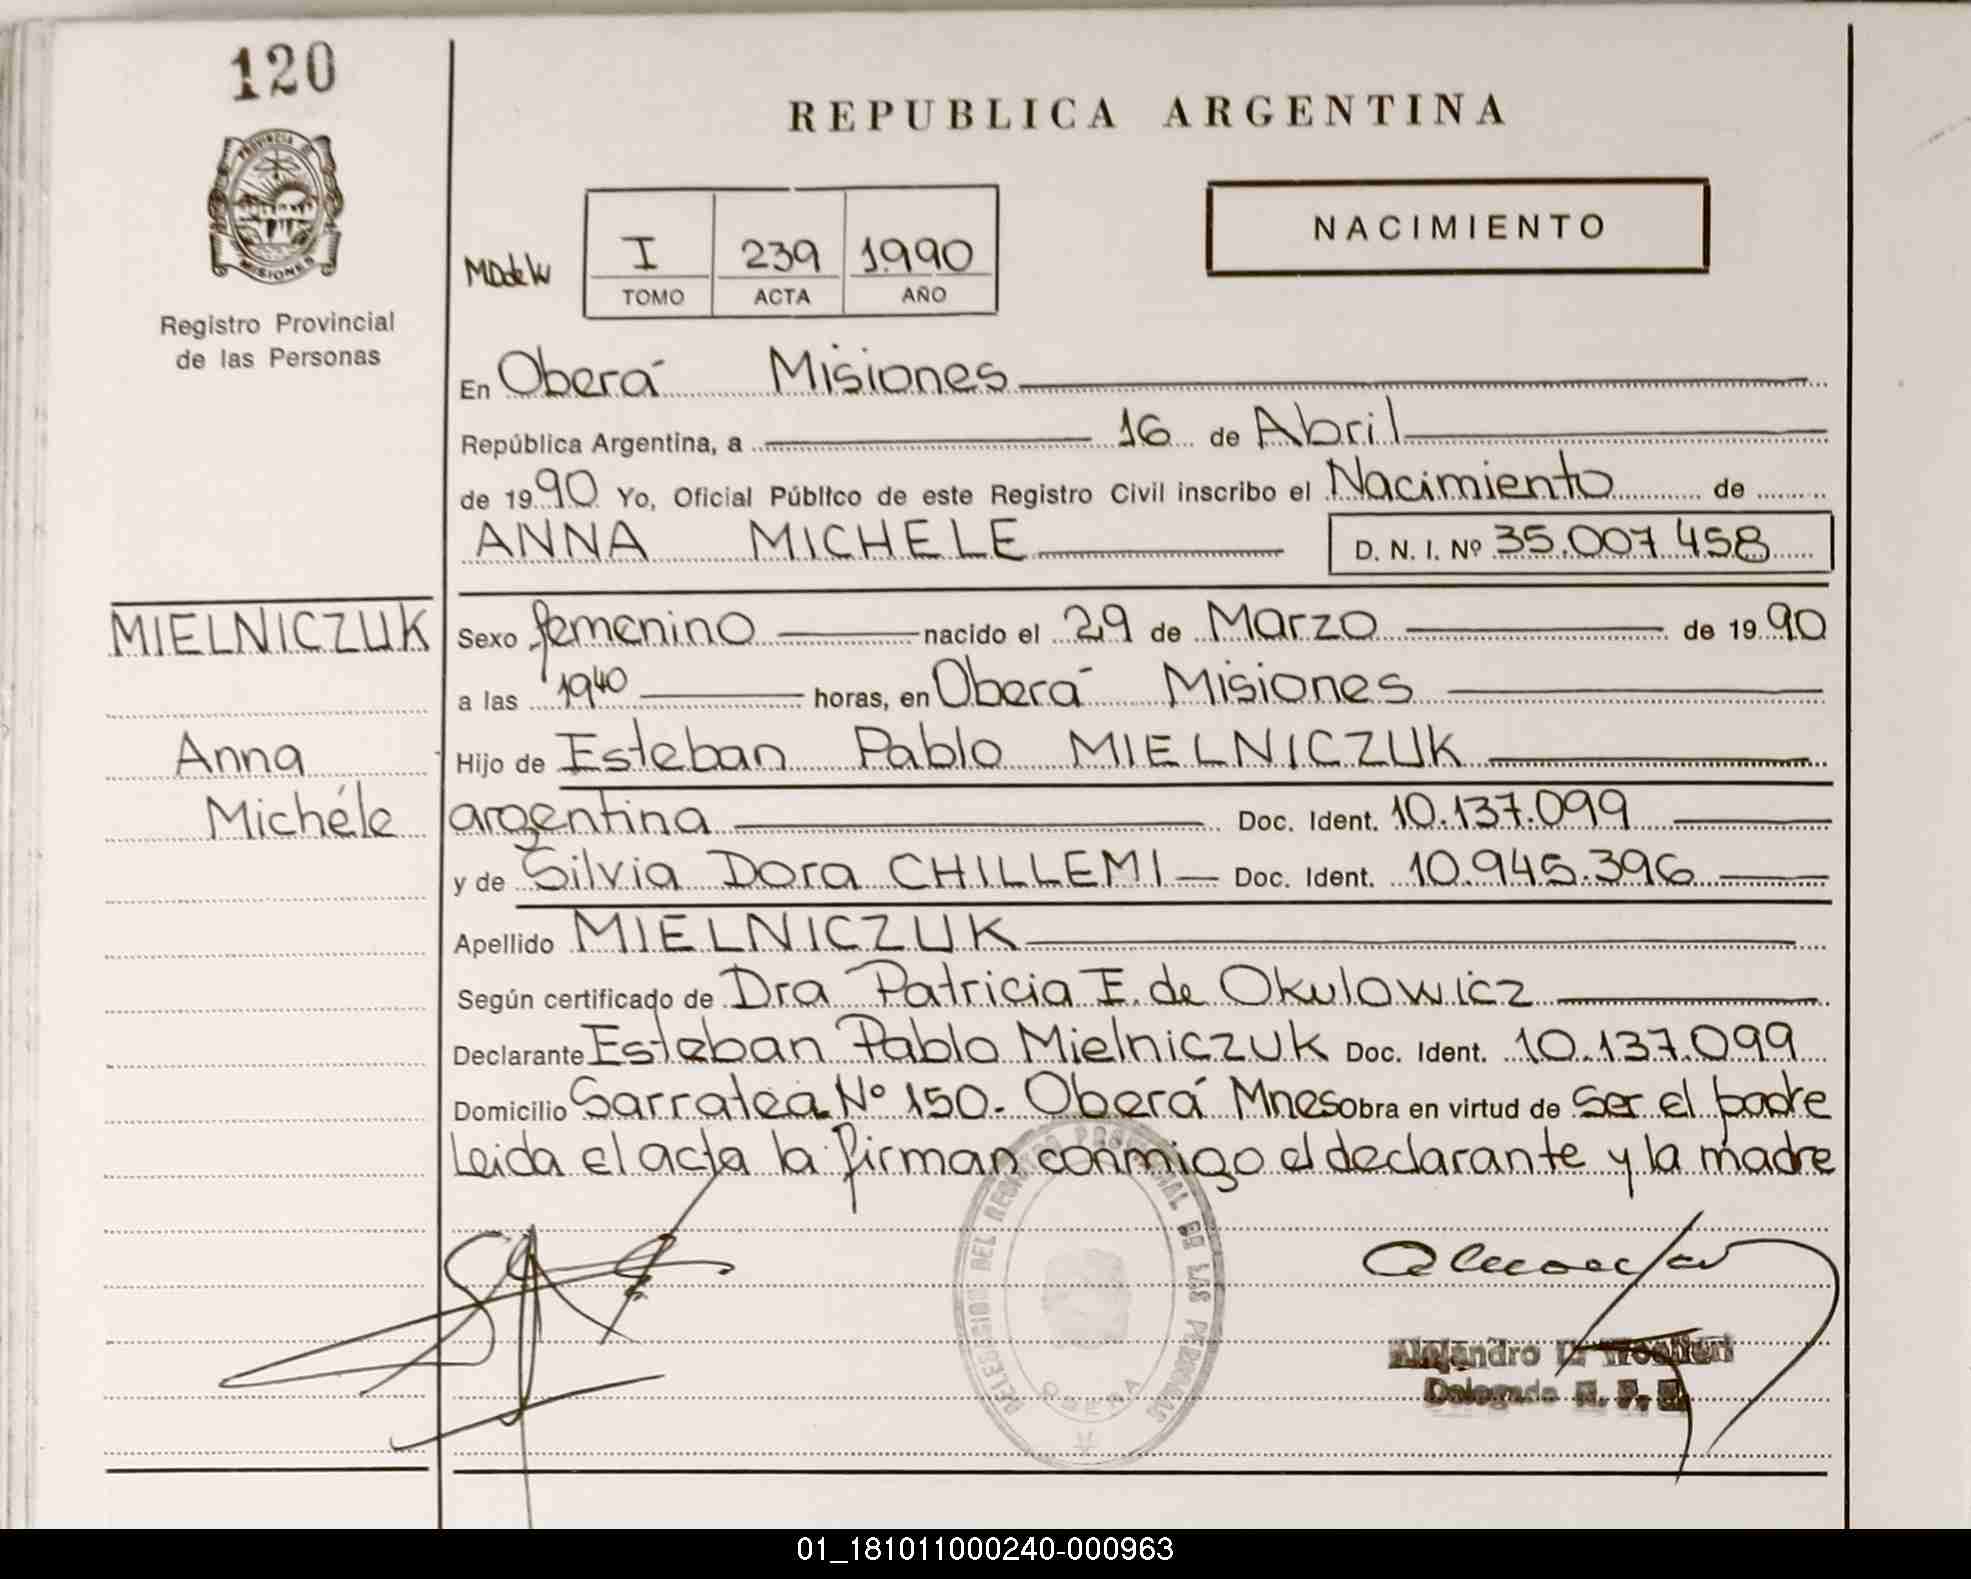 120
REPUBLICA ARGENTINA
PROVINCIA DE
MISIONES
Registro Provincial
de las Personas
I 239 1.990
TOMO ACTA AÑO
NACIMIENTO
En Oberá Misiones
República Argentina, a 16 de Abril
de 1990 Yo, Oficial Público de este Registro Civil inscribo el Nacimiento de
ANNA MICHELE D. N. I. Nº 35.007.458
MIELNICZUK
Anna
Michéle
Sexo femenino nacido el 29 de Marzo de 1990
a las 1940 horas, en Oberá Misiones
Hijo de Esteban Pablo MIELNICZUK
argentina Doc. Ident. 10.137.099
y de Silvia Dora CHILLEMI Doc. Ident. 10.945.396
Apellido MIELNICZUK
Según certificado de Dra Patricia E. de Okulowicz
Declarante Esteban Pablo Mielniczuk Doc. Ident. 10.137.099
Domicilio Sarratea Nº 150. Oberá Mnes obra en virtud de ser el padre
Leida el acta la firman conmigo el declarante y la madre
DELEGACION DEL REGISTRO PROVINCIAL DE LAS PERSONAS
OBERA
Alejandro
Delegado R. P. P.
01_181011000240-000963